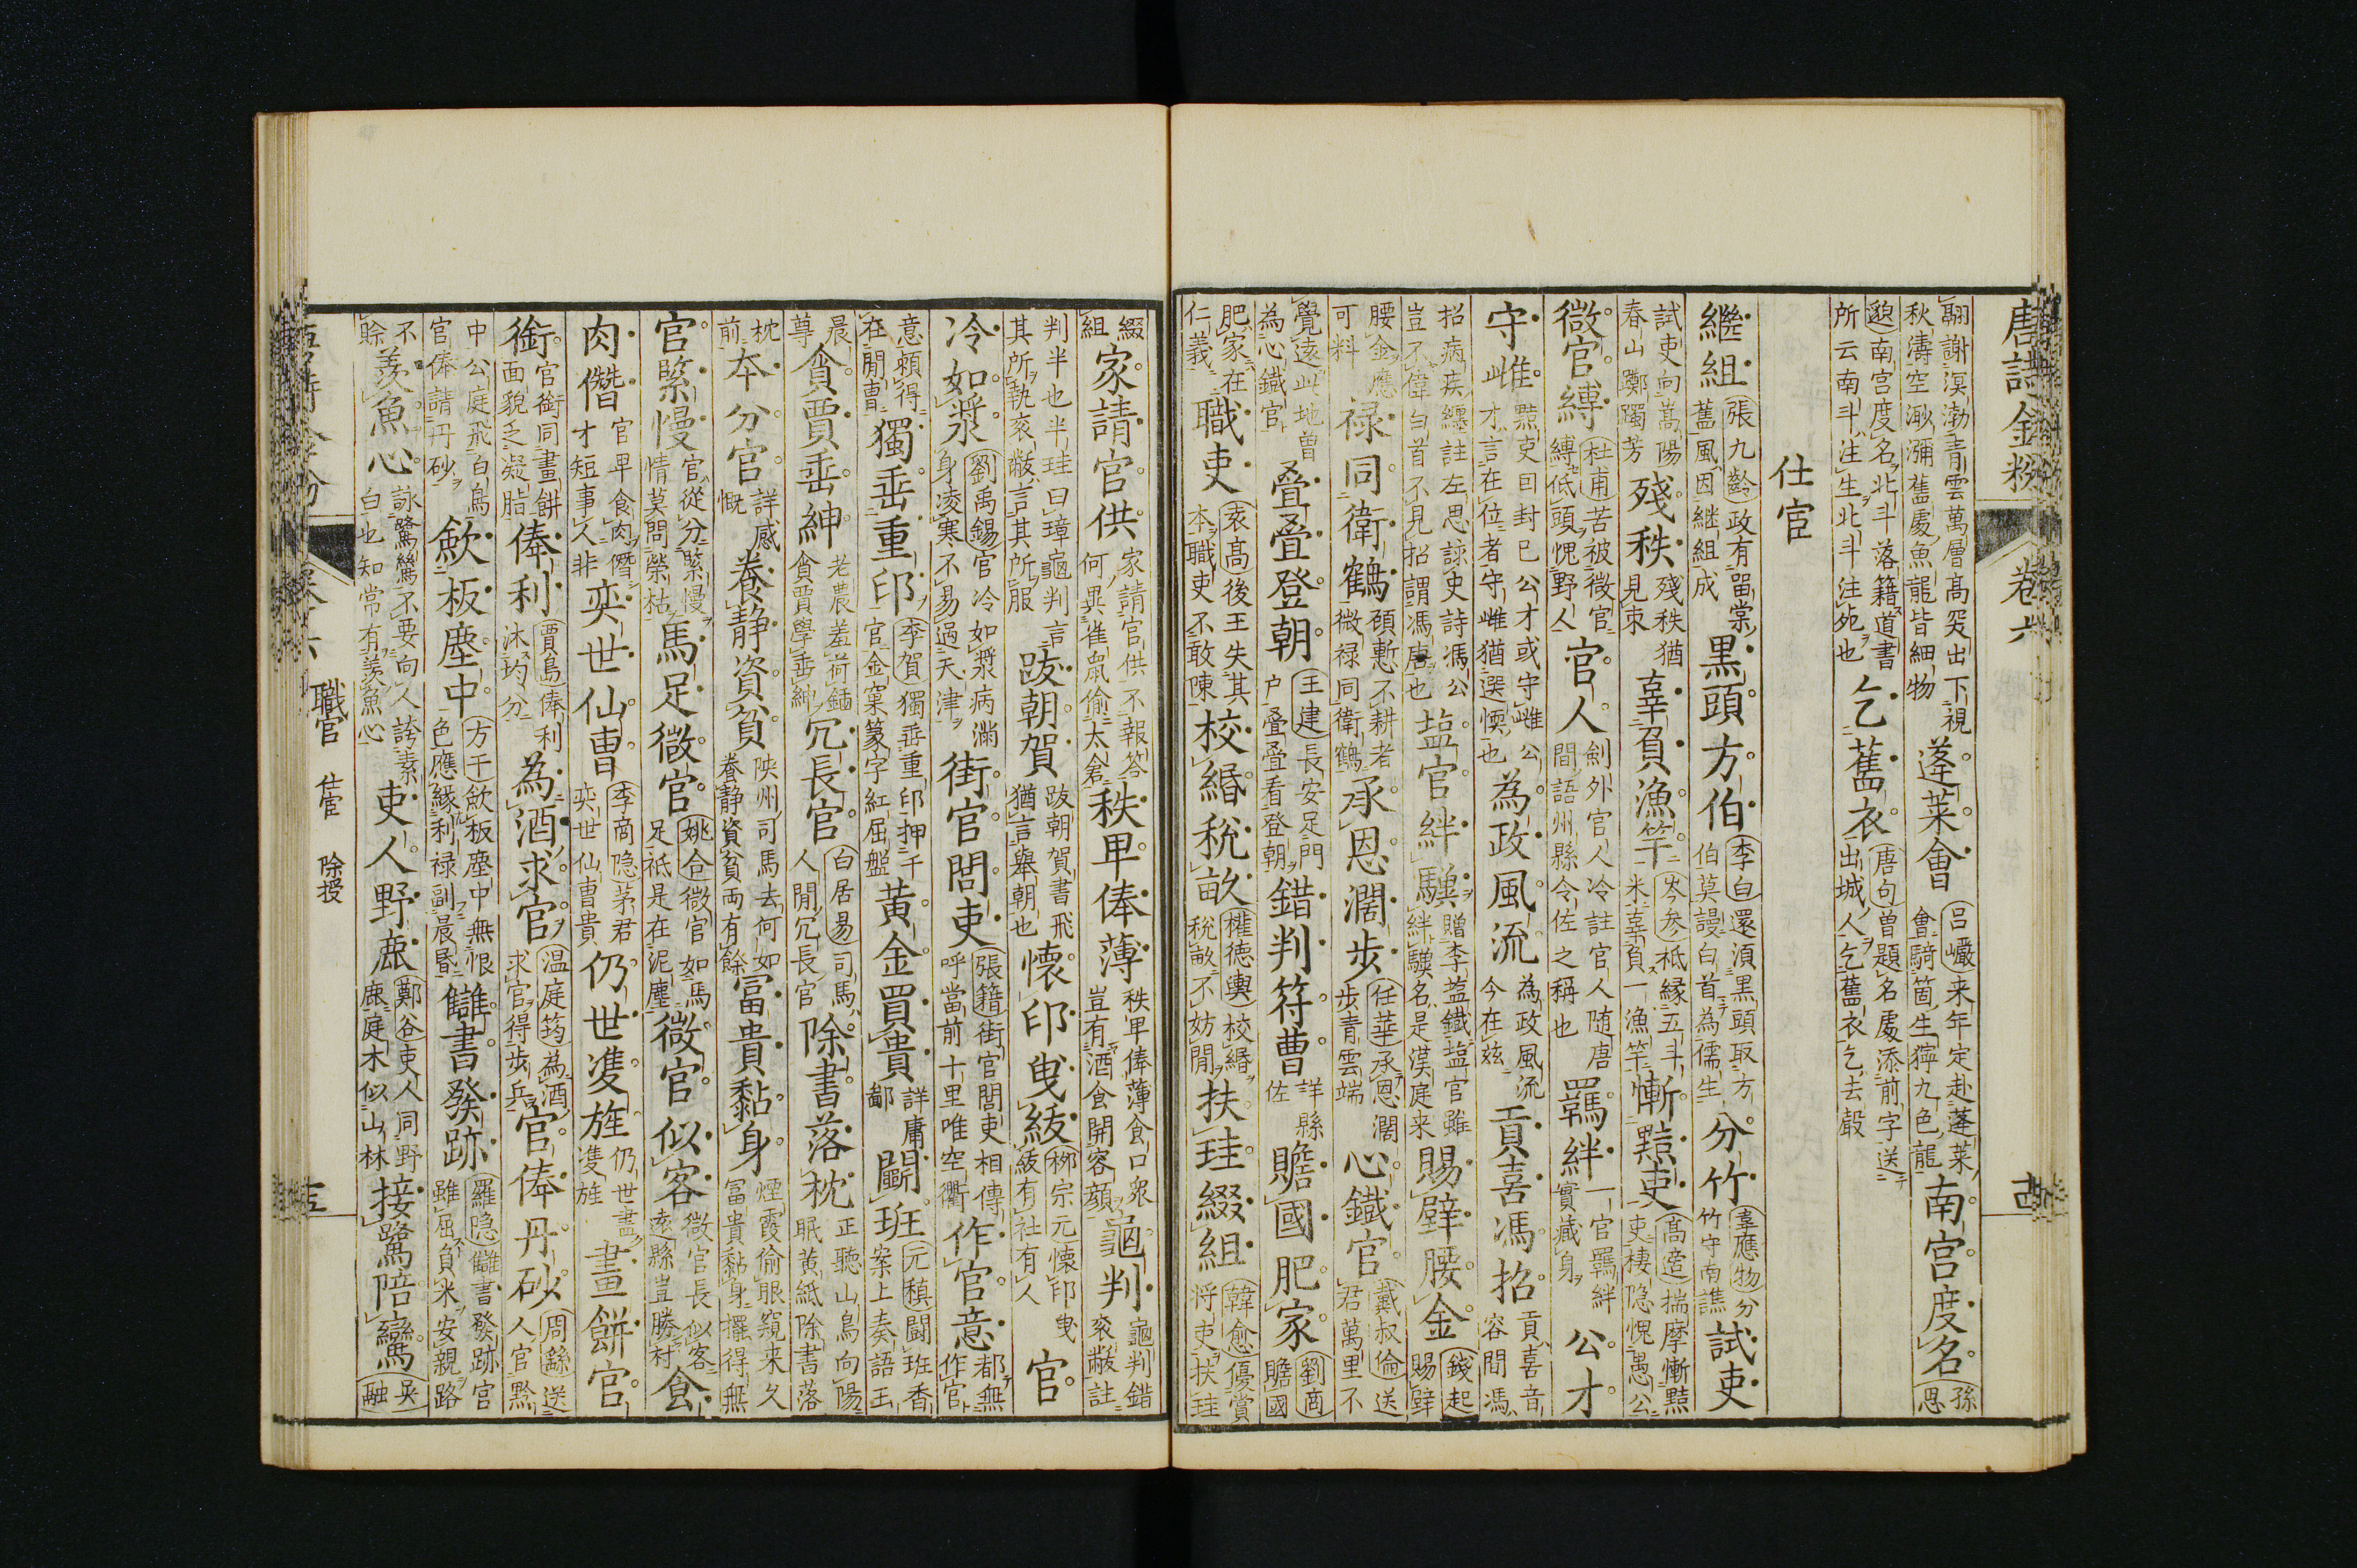 唐詩金粉 卷六
翮謝溟渤青雲萬層高突出下視
秋濤空渺瀰舊處魚龍皆細物
蓬莱會
呂巖来年定赴蓬莱
會騎箇生獰九色龍
南宫度名
孫
思
邈南宫度名北斗落籍道書
所云南斗注生北斗注死也
乞舊衣
唐句曽題名處添前字送
出城人乞舊衣乞去聲
仕宦
繼組
張九齡政有畱棠
舊風因継組成
黒頭方伯
李白還湏黒頭取方
伯莫謾白首為儒生
分竹
韋應物分
竹守南譙
試吏
試吏向嵩陽
春山躑躅芳
殘秩
殘秩猶
見束
辜負漁竿
岑参祗縁五斗
米辜負一漁竿
慚黠吏
高適揣摩慚黠
吏棲隐愧愚公
微官縛
杜甫苦被微官
縛低頭愧野人
官人
劍外官人冷註官人随唐
間語州縣令佐之稱也
羈絆
一官羈絆
實藏身
公才
守雌
黠吏囙封已公才或守雌公
才言在位者守雌猶選愞也
為政風流
為政風流
今在兹
貢喜馮招
貢喜音
容間馮
招病疾纒註左思詠史詩馮公
豈不偉白首不見招謂馮唐也
塩官絆驥
贈李益鐵塩官雖
絆驥名是漢庭来
賜璧腰金
錢起
賜璧
腰金應
可料
禄同衛鶴
碩慙不耕者
微禄同衛鶴
承恩濶步
任華承恩濶
步青雲端
心鐵官
戴叔倫送
君萬里不
覺遠此地曽
為心鐵官
疊疊登朝
王建長安足門
户疊疊看登朝
錯判符曹
詳縣
佐
贍國肥家
劉商
贍國
肥家在
仁義
職吏
袁高後王失其
本職吏不敢陳
校緡税畝
權德輿校緡
税畝不妨閒
扶珪綴組
韓愈優賞
将吏扶珪
綴
組
家請官供
家請官供不報答
何異雀鼠偷太倉
秩甲俸薄
秩甲俸薄食口衆
豈有酒食開容顔
龜判
龜判錯
衮黻註
判半也半珪曰璋龜判言
其所執衮黻言其所服
跋朝賀
跋朝賀書飛
猶言舉朝也
懷印曳紱
栁宗元懷印曳
紱有社有人
官
冷如漿
劉禹錫官冷如漿病滿
身凌寒不易過天津
街官閭吏
張籍街官閭吏相傳
呼當前十里唯空衢
作官意
都無
作官
意頼得
在閒曹
獨垂重印
李賀獨垂重印押千
官金窠篆字紅屈盤
黄金買貴
詳庸
鄙
鬬班
元稹鬬班香
案上奏語玉
晨
尊
貪賈垂紳
老農羞荷鍤
貪賈學垂紳
冗長官
白居易司馬
人閒冗長官
除書落枕
正聽山鳥向陽
眠黄紙除書落
枕
前
本分官
詳感
慨
養静資貧
陝州司馬去何如
養静資貧両有餘
冨貴黏身
煙霞偷眼窺来久
冨貴黏身擺得無
官緊慢
官從分緊慢
情莫問榮枯
馬足微官
姚合微官如馬
足祗是在泥塵
微官似客
微官長似客
逺縣豈勝村
食
肉僭
官甲食肉僭
才短事人非
奕世仙曺
李商隐茅君
奕世仙曺貴
仍世䨇旌
仍世盡
䨇旌
畫餅官
銜
官銜同畫餅
面貌乏凝脂
俸利
賈島俸利
沐均分
為酒求官
温庭筠為酒
求官得歩兵
官俸丹砂
周繇送
人官黔
中公庭飛白鳥
官俸請丹砂
歛板塵中
方干歛板塵中無恨
色應縁利禄副晨昬
讎書發跡
羅隐讎書發跡官
雖屈負米安親路
不
賒
羨魚心
詠鷺鷥不要向人誇素
白也知常有羨魚心
吏人野鹿
鄭谷吏人同野
鹿庭木似山林
接鷺陪鸞
吳
融
職官 仕宦 除授